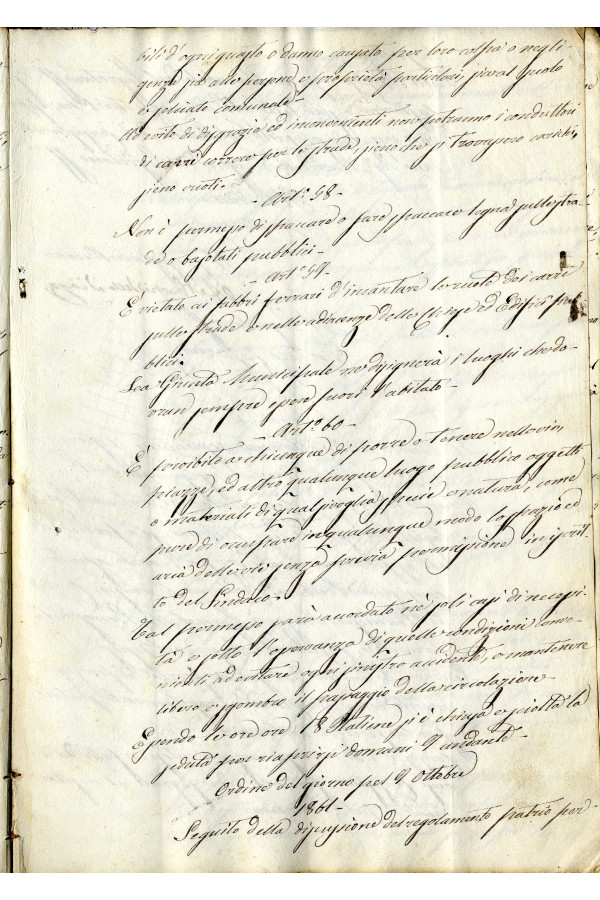 bili d'ogni guasto o danno causato per loro colpa o negli-
genza sia alle persone e proprietà particolari, sia al suolo
e selciato comunale -
Ad evito di disgrazie ed inconvenienti non potranno i conduttori
di carri correre per le strade, sieno che si trovassero carichi,
sieno vuoti. -
- Art.° 58 -
Non è permesso di spaccare o fare spaccare legna sulle stra
de o bajolati pubblici -
- Art.° 59 -
È vietato ai fabbri ferrari d'incantare le ruote dei carri
sulle strade e nelle adiacenze delle Chiese ed Edifici pub
blici.
La Giunta Municipale ne disignerà i luoghi che do-
vran sempre essere fuori l'abitato -
- Art.° 60 -
È proibito a chiunque di porre o tenere nelle vie,
piazze, ed altro qualunque luogo pubblico oggetti
o materiali di qualsivoglia specie o natura, come
pure di occupare in qualunque modo lo spazio ed
aria delle vie senza previa permissione in iscrit-
to del Sindaco -
Tal permesso sarà accordato ne' soli casi di necessi-
tà e sotto l'osservanza di quelle condizioni conve-
nienti ad evitare ogni sinistro accidente, o mantenere
libero e sgombro il passaggio della circolazione -
Essendo le ore ore 18 Italiane si è chiusa e sciolta la
seduta per riaprirsi domani 9 andante -
Ordine del giorno pel 9 Ottobre
1861 -
Seguito della discussione del regolamento